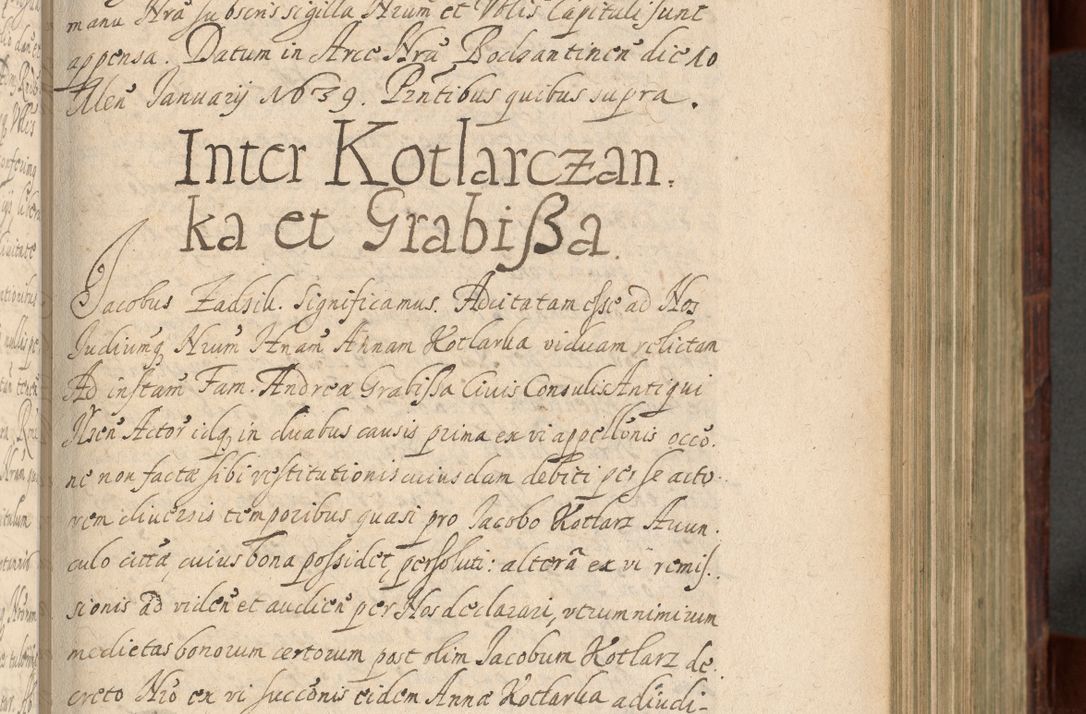 manu Nrã subscris sigilla Nrum et Vblis Capituli sunt
appensa. Datum in Arce Nrã Bodzantinen̄ die 10
Men̄ Januarij 1639. Prn̄tibus quibus supra.
Inter Kotlarczan.
ka et Grabißa.
Jacobus Zadzik. Significamus. Adcitatam esse ad Nos
Judiumq Nrum Hnam̄ Annam Kotlarka viduam relictam
Ad instam̄ Fam. Andreæ Grabißa Ciuis Consulis Antiqui
Actor̄ idq in duabus causis prima ex vi appellōnis occō.
ne non factæ sibi restitutionis cuiusdam debiti per se acto
rem diuersis temporibus quasi pro Jacobo Kotlarz Auun.
culo citta, cuius bona possidet, persoluti: alterã ex vi remis.
sionis ad viden̄ et audien̄ per Nos declarari, vtrum nimirum
medietas bonorum certorum post olim Jacobum Kotlarz de.
creto Nro ex vi succōnis eidem Annæ Kotlarka adiudi-